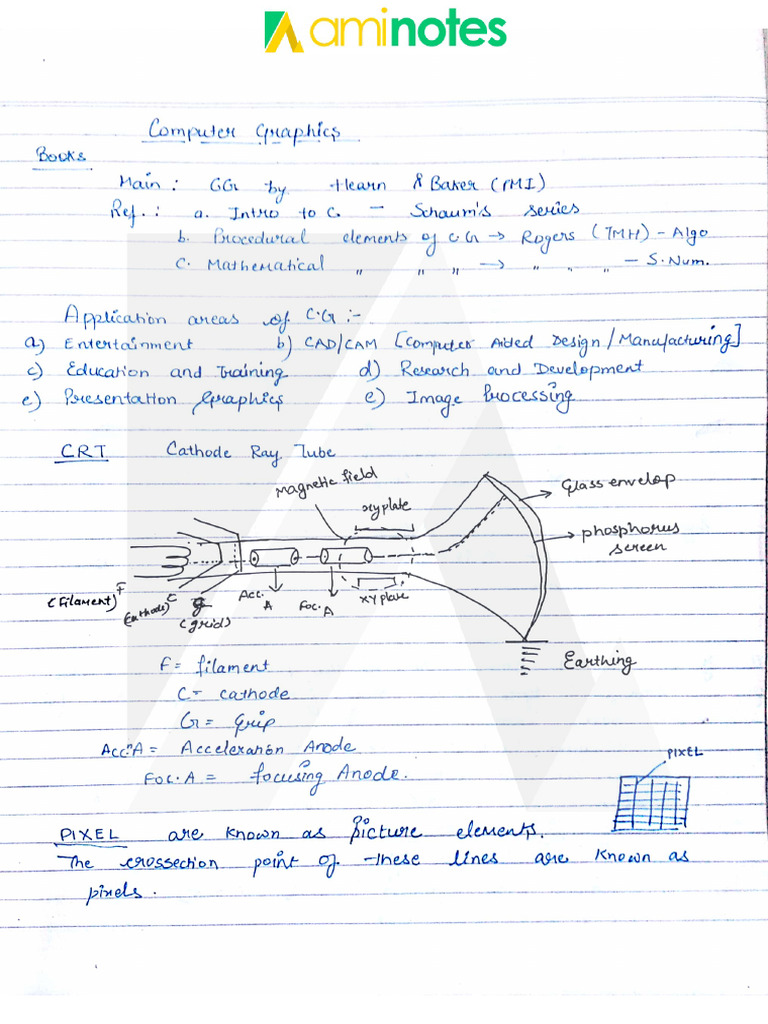 aminotes
Computer Graphics
Books
Main : CG by Hearn & Baker (PMI)
Ref. : a. Intro to C. - Schaum's series
b. Procedural elements of C G → Rogers (TMH) - Algo
c. Mathematical " " " → " " " - S. Num.
Application areas of C.G :-
a) Entertainment b) CAD/CAM [Computer Aided Design / Manufacturing]
c) Education and Training d) Research and Development
e) Presentation Graphics e) Image Processing
CRT Cathode Ray Tube
magnetic field
xy plate
Glass envelop
phosphorus
screen
(filament) F
(cathode) C
g
(grid)
Acc. A
Foc. A
xy plate
Earthing
F = filament
C = cathode
G = Grip
Acc.A = Acceleration Anode
Foc. A = focusing Anode.
PIXEL
PIXEL are known as picture elements.
The crossection point of these lines are known as
pixels.